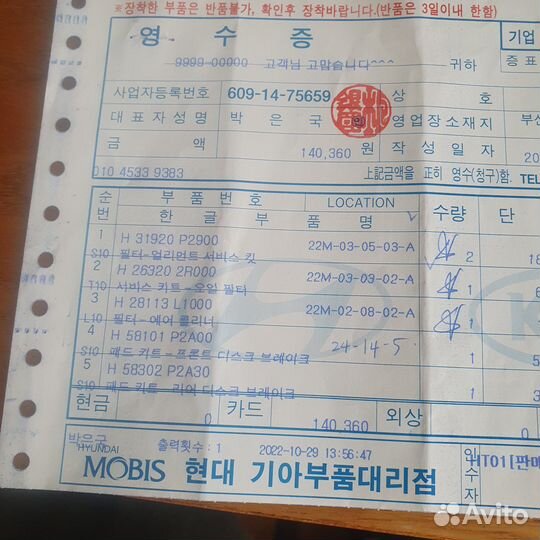 ※장착한 부품은 반품불가, 확인후 장착바랍니다.(반품은 3일이내 한함)
영 수 증
기업
9999-00000 고객님 고맙습니다^^^ 귀하
증 표
사업자등록번호 609-14-75659 상 호
대 표 자 성 명 박 은 국 인 영 업 장 소 재 지 부산
금 액 140,360 원 작 성 일 자 20
010 4533 9383 上記금액을 正히 영수(청구)함. TEL
순번 부 품 번 호 LOCATION 수량 단
한 글 부 품 명
1 H 31920 P2900 22M-03-05-03-A 2 18
S10 필터-얼리먼트 서비스 킷
2 H 26320 2R000 22M-03-03-02-A 1 6
T10 서비스 키트-오일 필터
3 H 28113 L1000 22M-02-08-02-A 1
L10 필터-에어 클리너
4 H 58101 P2A00 24-14-5 1 5
S10 패드 키트-프론트 디스크 브레이크
5 H 58302 P2A30 1 3
S10 패드 키트-리어 디스크 브레이크
현금 0 카드 140,360 외상 0
박은국 출력횟수 : 1 2022-10-29 13:56:47
HYUNDAI
MOBIS 현대 기아부품대리점
인수자
HT01[판매
Avito